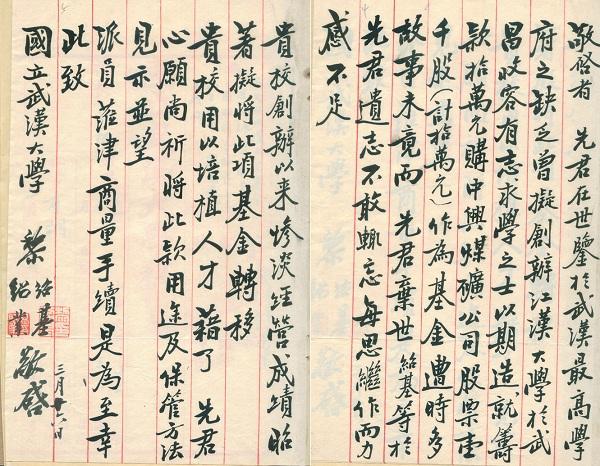 敬啓者 先君在世鑒於武漢最高學
府之缺乏曾擬創辦江漢大學於武
昌收容有志求學之士以期造就籌
款拾萬元購中興煤礦公司股票壹
千股(計拾萬元)作為基金遭時多
故事未竟而 先君棄世紹基等於
先君遺志不敢輒忘每思繼作而力
感不足
貴校創辦以来慘淡經營成績昭
著擬將此項基金轉移
貴校用以培植人才藉了 先君
心願尚祈將此款用途及保管方法
見示並望
派員蒞津商量手續是為至幸
此致
國立武漢大學 黎紹基 紹業 敬啓
三月十六日